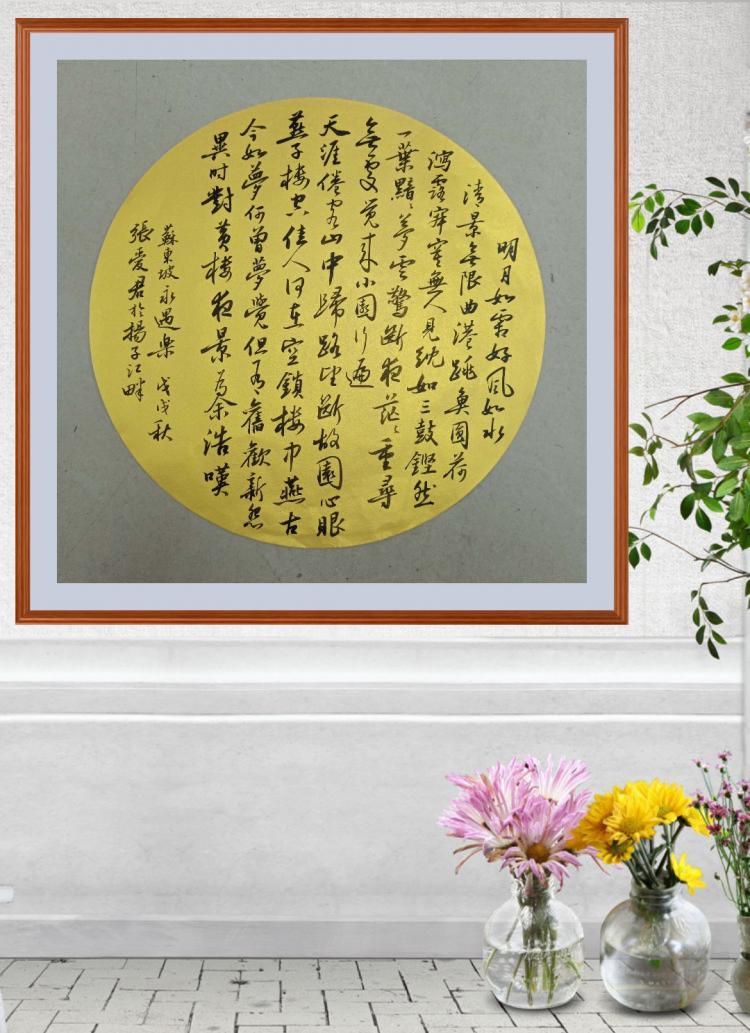 明月如霜好風如水
清景無限曲港跳魚圓荷
瀉露寂寞無人見紞如三鼓鏗然
一葉黯々夢雲驚斷夜茫々重尋
無處覓來小園行遍
天涯倦客山中歸路望斷故園心眼
燕子樓空佳人何在空鎖樓中燕古
今如夢何曾夢覺但有舊歡新怨
異時對黃樓夜景為余浩嘆
蘇東坡永遇樂 戊戌秋
張愛君於揚子江畔